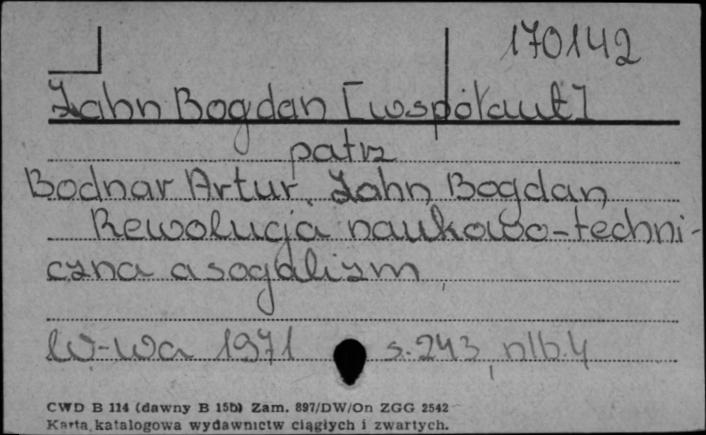 170142
Zahn Bogdan [współaut]
patrz
Bodnar Artur, Zahn Bogdan
Rewolucja naukowo-techni-
czna a socjalizm
W-wa 1971 s. 243, nlb. 4
CWD B 114 (dawny B 15b) Zam. 897/DW/On ZGG 2542
Karta katalogowa wydawnictw ciągłych i zwartych.